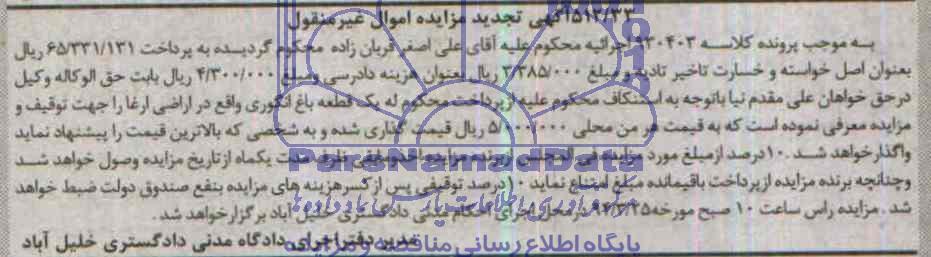 ۵۱۲/۳۳ آگهی تجدید مزایده اموال غیرمنقول
به موجب پرونده کلاسه ۹۳۰۴۰۳ اجرائیه محکوم علیه آقای علی اصغر قربان زاده محکوم گردیده به پرداخت ۶۵/۳۳۱/۱۳۱ ریال
بعنوان اصل خواسته و خسارت تاخیر تادیه و مبلغ ۳/۳۸۵/۰۰۰ ریال بعنوان هزینه دادرسی ومبلغ ۴/۳۰۰/۰۰۰ ریال بابت حق الوکاله وکیل
درحق خواهان علی مقدم نیا باتوجه به استنکاف محکوم علیه ازپرداخت محکوم له یک قطعه باغ انگوری واقع در اراضی ارغا را جهت توقیف و
مزایده معرفی نموده است که به قیمت هر من محلی ۵/۰۰۰/۰۰۰ ریال قیمت گذاری شده و به شخصی که بالاترین قیمت را پیشنهاد نماید
واگذارخواهد شد .۱۰درصد ازمبلغ مورد مزایده فی المجلس ازبرنده مزایده اخذومابقی ظرف مدت یکماه ازتاریخ مزایده وصول خواهد شد
وچنانچه برنده مزایده ازپرداخت باقیمانده مبلغ امتناع نماید ۱۰درصد توقیفی پس ازکسرهزینه های مزایده بنفع صندوق دولت ضبط خواهد
شد . مزایده راس ساعت ۱۰ صبح مورخه درمحل اجرای احکام مدنی دادگستری خلیل آباد برگزارخواهد شد .
مدیردفتراجرای دادگاه مدنی دادگستری خلیل آباد
ParsNamadData
پایگاه اطلاع رسانی مناقصه و مزایده